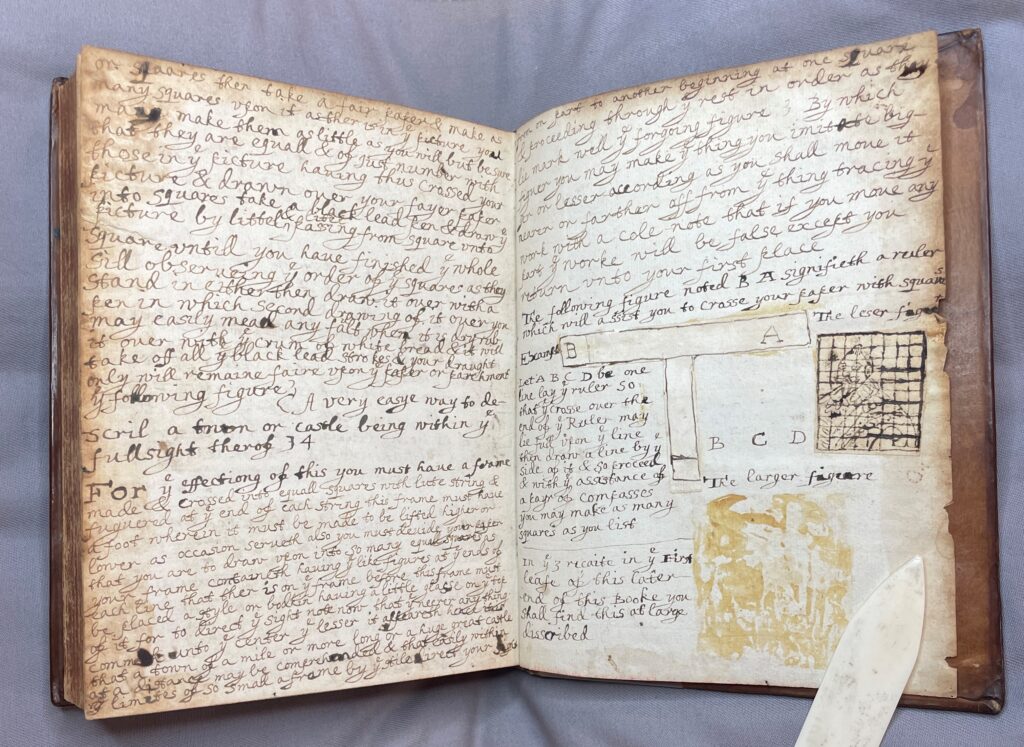 on squares then take a fair paper & make as
many squares vpon it as there is in yͤ picture you
may make them as little as you will but be sure
that they are equall & of Just number with
those in yͤ picture having thus crossed your
picture & drawn over your fayer paper
into squares take a black lead pen & draw yͤ
picture by little & little passing from square vnto
square vntill you have finished yͤ whole
Still observeing yͤ order of yͤ squares as they
stand in either then draw it over with a
pen in which second drawing of it over you
may easily mead any falt when it is dry rub
it over with yͤ crum of white bread & it will
take off all yͤ black lead strokes & your draught
only will remaine faire vpon yͤ paper or parchment
yͤ following figure
A very easye way to de-
scrib a town or castle being within yͤ
full sight therof 34
For yͤ effectiong of this you must have a frame
made & crossed into equall squares with lute string &
figuered at yͤ end of each string this frame must have
a foot wherein it must be made to be lifted higher or
lower as occasion serveth also you must devide your paper
that you are to draw vpon into so many equal squares as
your frame containeth having yͤ like figures at yͤ ends of
each line that ther is on yͤ frame before this frame must
be placed a style or bodkin having a little glasse on yͤ top
of it for to direct yͤ sight note now that yͤ neerer any thing
commeth unto yͤ center yͤ lesser it appeareth hence it is
that a town of a mile or more long or a huge great castle
at a distance may be comprehended & that easily within
yͤ limites of so small a frame by yͤ stile direct your
from on part to another beginning at one square
& proceeding through yͤ rest in order as they
but mark well yͤ forgoing figure By which
maner you may make yͤ thing you imitate big-
er or lesser according as you shall move it
neven or farther off from yͤ thing tracing yͤ
work with a cole note that if you move any
part yͤ worke will be false except you
return vnto your first place
The following figure noted B A signifieth a ruler
which will assist you to Crosse your paper with squares
The leser figure
Example
B A
Let A B C D be one
line lay yͤ ruler so
that yͤ crosse over the
end of yͤ Ruler may
lie full vpon yͤ line
then draw a line by yͤ
side of it & so proceed
& with yͤ assistance of
a payr of Compasses
you may make as many
squares as you list
B C D
The larger figuere
In yͤ 3 ricaite in yͤ First
leafe of this later
end of this Booke you
shall find this at large
discribed